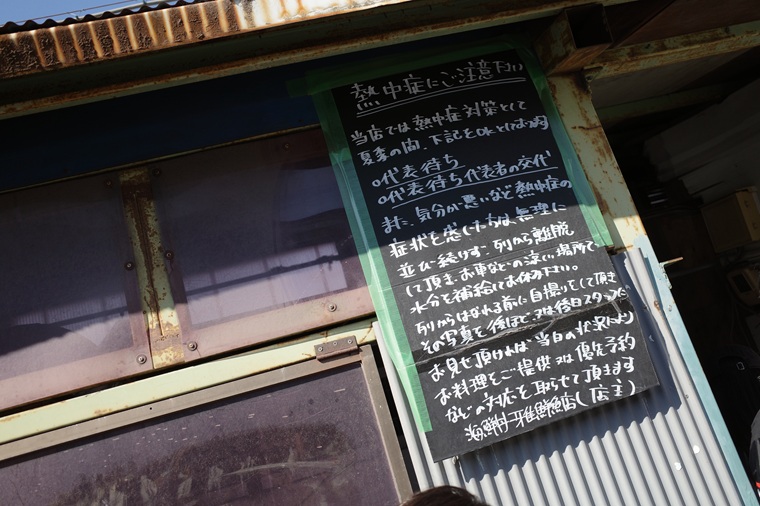 熱中症にご注意下さい
当店では熱中症対策として
夏季の間、下記をOKとしており〼
○代表待ち
○代表待ち代表者の交代
また、気分が悪いなど熱中症の
症状を感じた方は、無理に
並び続けず、列から離脱
して頂き、お車などの涼しい場所で
水分を補給してお休み下さい。
列からはなれる前に自撮りをして頂き
その写真を後ほど又は後日スタッフに
お見せ頂ければ、当日の状況により
お料理をご提供又は優先予約
などの対応を取らせて頂きます
海鮮丼 (店主)